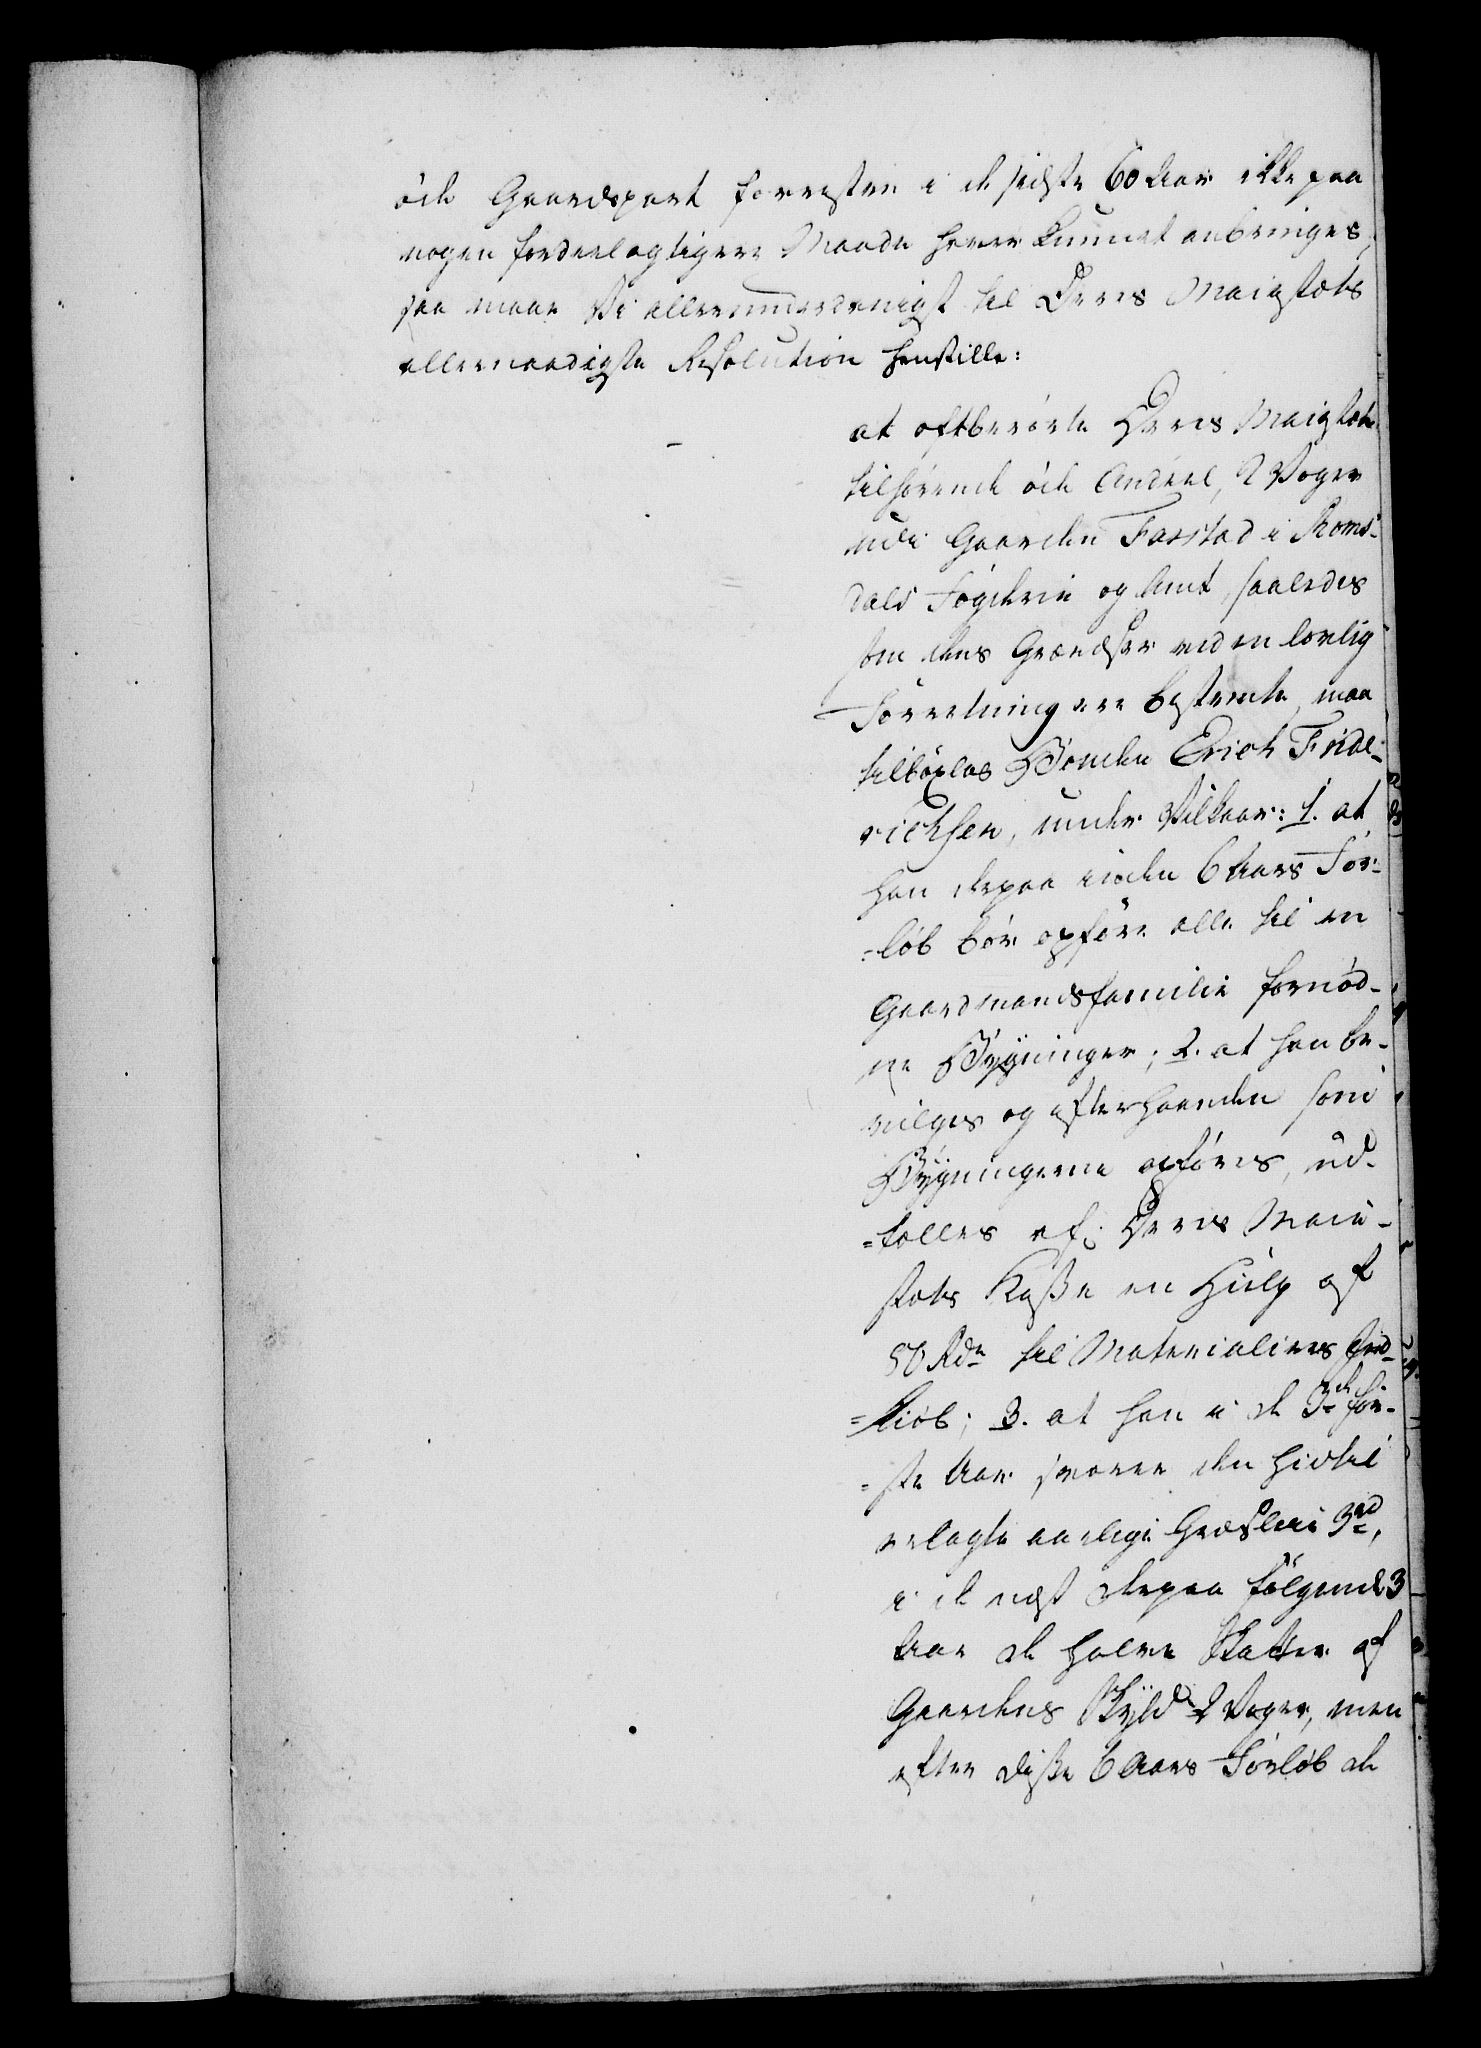 öde Gaardspart forresten i de sidste 60 Aar ikke paa
nogen fordeelagtigere Maade haver kunnet anbringes,
saa maae Vi allerunderdanigst til Deres Maiestæts
allernaadigste Resolution henstille:
at oftberørte Deres Maiestæt
tilhørende øde Andeel, 2 Voger
udi Gaarden Farstad i Roms-
dals Fogderie og Amt, saaledes
som dens Grændser ved en lovlig
Forretning ere bestemte, maa
tilbøxles Bonden Erich Fride-
richsen, under Vilkaar: 1. at
han derpaa inden 6 Aars For-
=løb bør opføre alle til en
Gaardmandsfamilie fornød-
ne Bygninger; 2. at han be-
vilges og efterhaanden som
Bygningerne opføres, ud-
=tælles af Deres Maie-
stæts Kasse en Hielp af
50 Rdr til Materialiers Ind-
=kiøb; 3. at han i de 3de før-
=ste Aar svarer den hidtil
erlagte aarlige Græsleie 3rd,
i de næst derpaa følgende 3
Aar de halve Skatter af
Gaardens Skyld 2 Voger, men
efter disse 6 Aars Forløb de